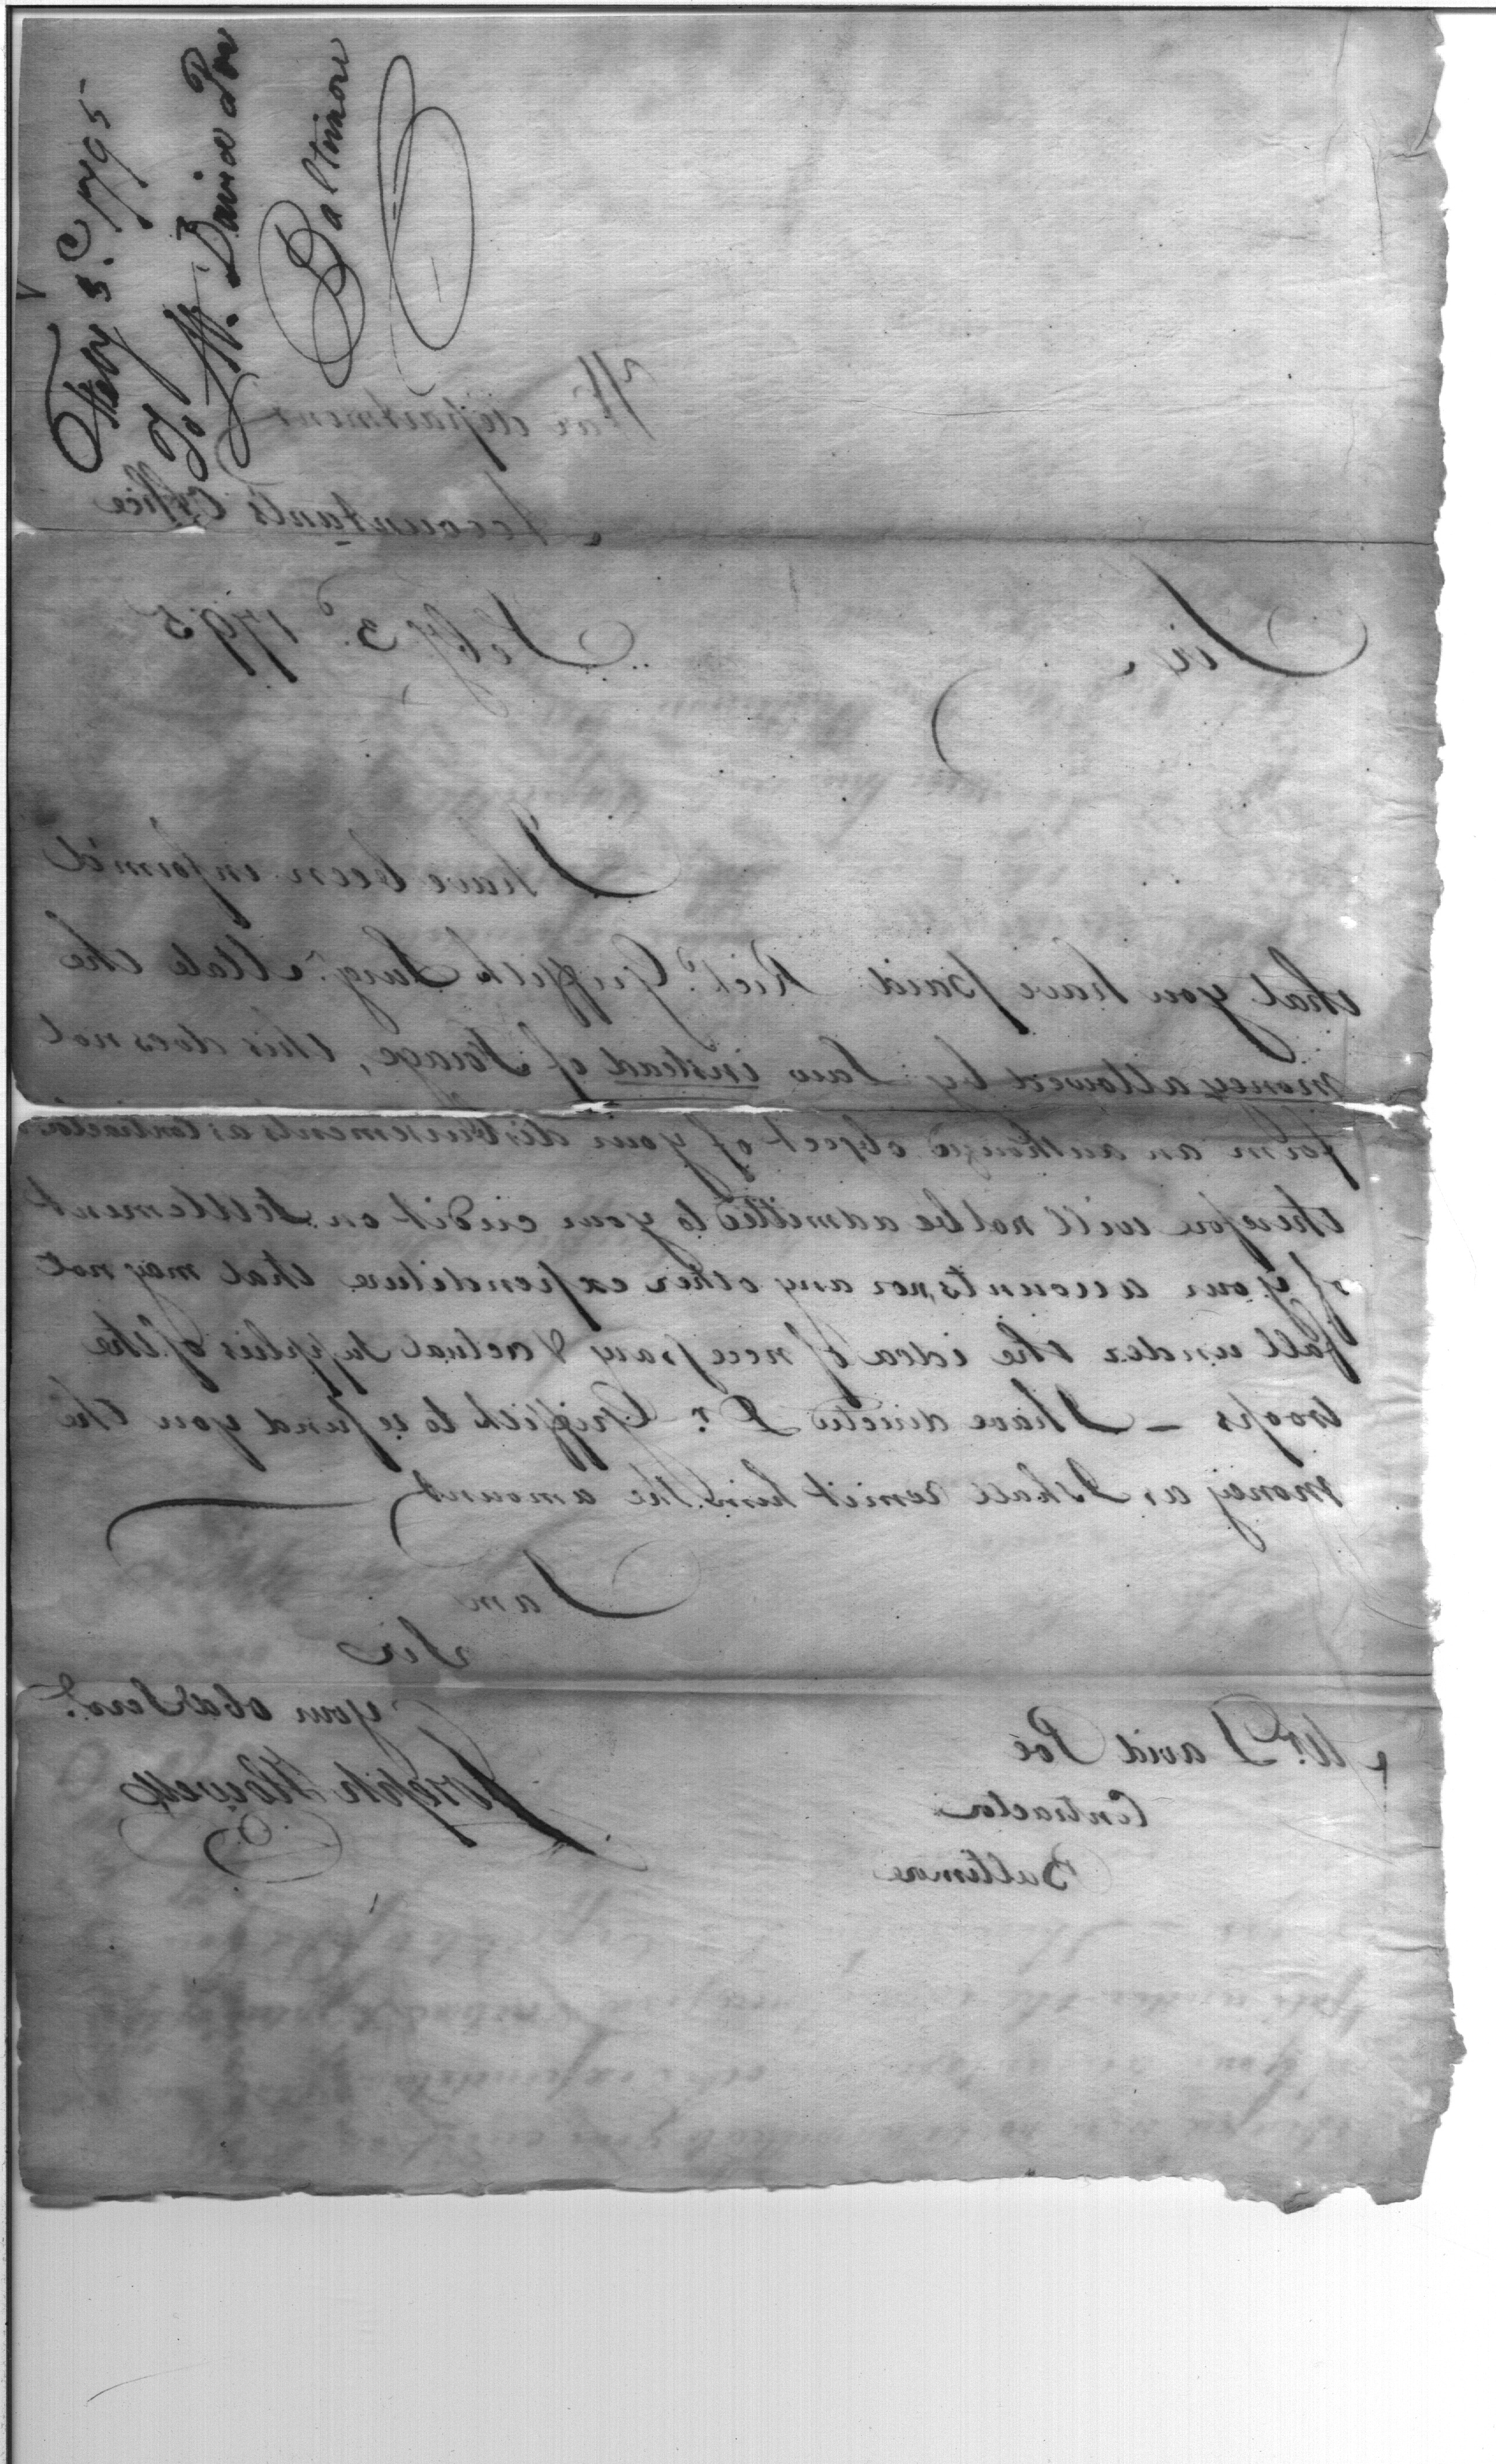 Feby 3.d 1795
To Mr. David Poe
Baltimore
War department
Accountants Office
Feby 3.d 1795
Sir,
I have been inform'd
that you have paid Richd. Griffith Surgs. Mate the
money allowed by Law instead of Forage, this does not
form an authorized object of your disbursements as Contractor
therefore will not be admitted to your credit on settlement
of your accounts, nor any other expenditure that may not
fall under the idea of necessary & actual supplies of the
troops – I have directed Dr. Griffith to refund you the
money as I shall remit him the amount
I am
Sir
your obd Servt.
Joseph Howell
Mr. David Poe
Contractor
Baltimore